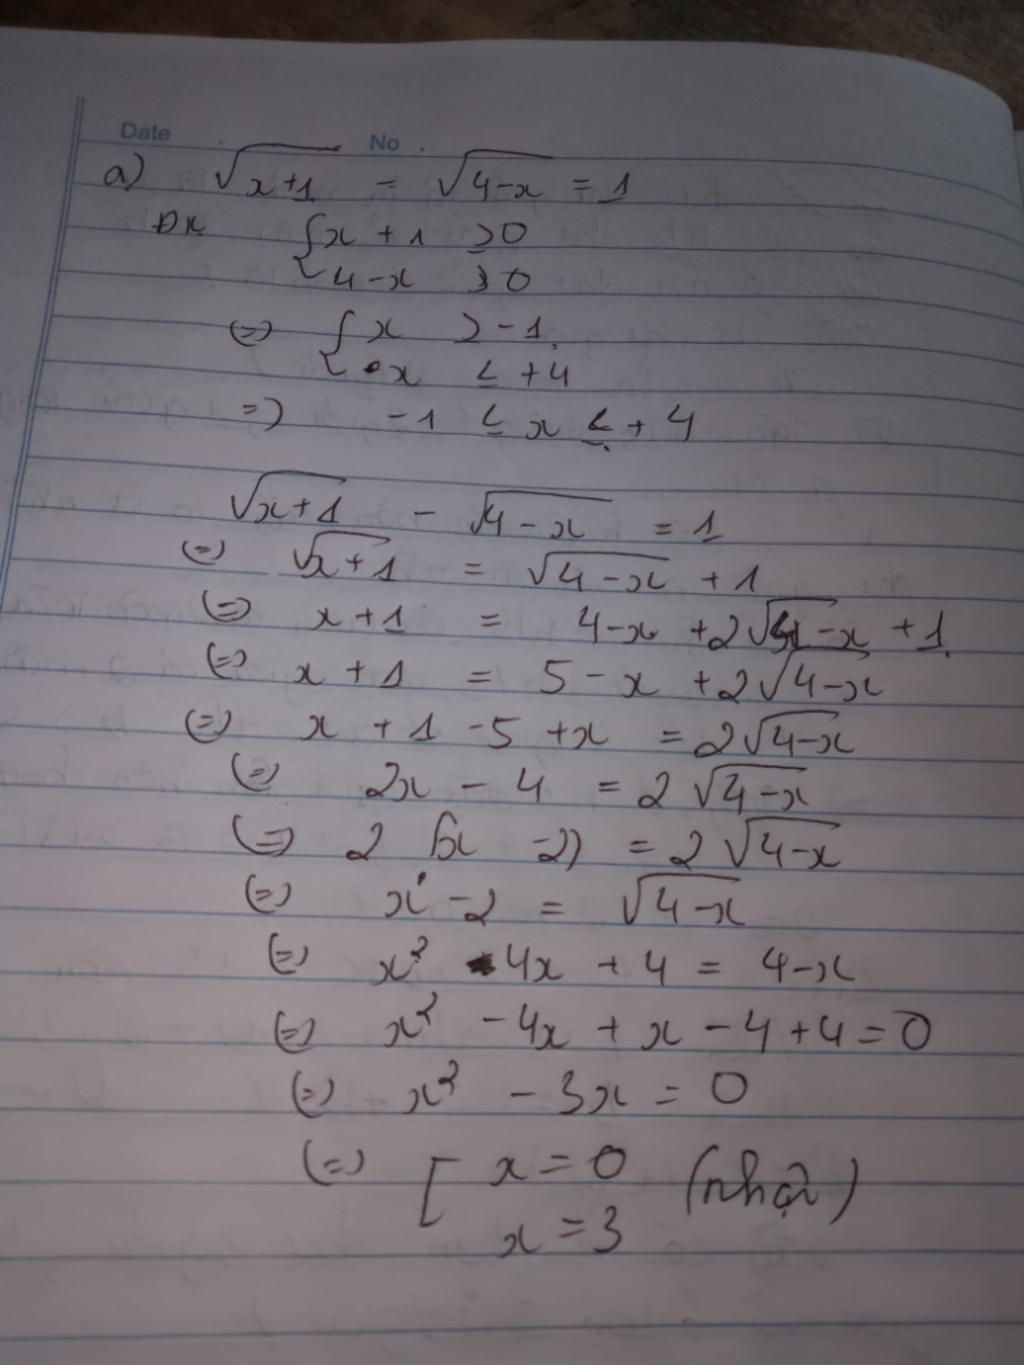 Date No .
a) √x+1 - √4-x = 1
ĐK {x + 1 ≥ 0
4-x ≥ 0
(=) {x ≥ -1
x ≤ +4
=) -1 ≤ x ≤ + 4
√x+1 - √4-x = 1
(=) √x+1 = √4-x + 1
(=) x+1 = 4-x +2√4-x + 1
(=) x + 1 = 5 - x + 2√4-x
(=) x + 1 - 5 + x = 2√4-x
(=) 2x - 4 = 2 √4-x
(=) 2 (x - 2) = 2 √4-x
(=) x - 2 = √4-x
(=) x² - 4x + 4 = 4-x
(=) x² - 4x + x - 4 + 4 = 0
(=) x² - 3x = 0
(=) [ x = 0 (nhận)
x = 3